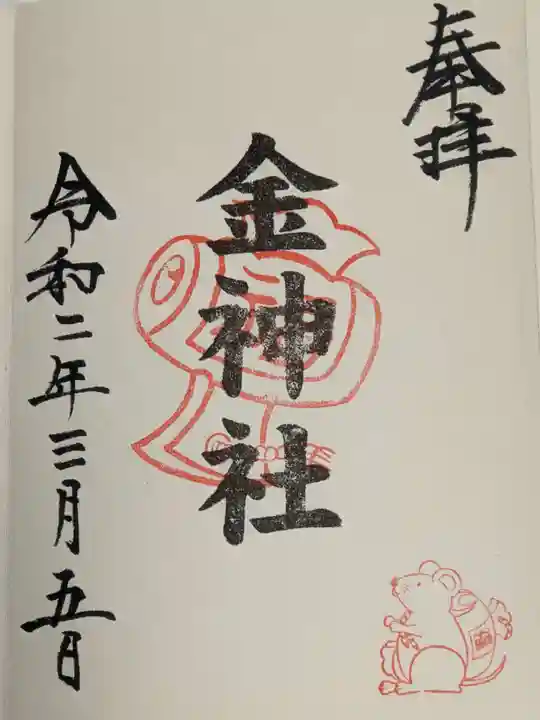 奉拝
金神社
令和二年三月五日